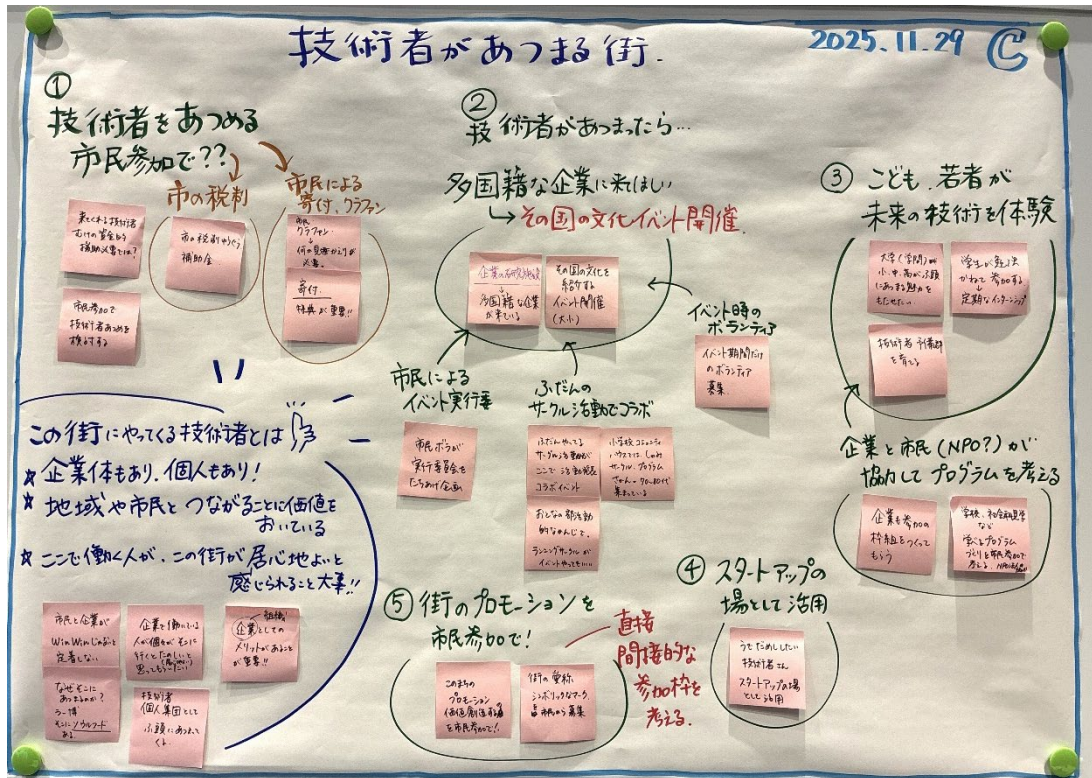 技術者があつまる街.
2025.11.29 C
①
技術者をあつめる
市民参加で??
市の税制
市民による
寄付、クラファン
来てくれる技術者
むけの資金的
補助必要では?
市の税制ゆうぐう
補助金
市民
クラファン
↓
何の見返かえりが
必要。
寄付
特典が重要!!
市民参加で
技術者あつめを
検討する
この街にやってくる技術者とは
☆ 企業体もあり、個人もあり!
☆ 地域や市民とつながることに価値を
おいている
☆ ここで働く人が、この街が居心地よいと
感じられること大事!!
市民と企業が
WinWinじゃないと
定着しない
企業で働いている
人が個々がそこに
行くとたのしいと
思ってもらいたい
組織
企業としての
メリットがあること
が重要!!
なぜそこに
あつまるのか?
ラー博
そこにソウルフード
ある
技術者
個人集団として
ふ頭にあつまって
くる
②
技術者があつまったら…
多国籍な企業に来てほしい
→その国の文化イベント開催
企業の研究施設
↓
多国籍な企業
が来ている
その国の文化を
紹介する
イベント開催
(大小)
イベント時の
ボランティア
イベント期間だけ
のボランティア
募集
市民による
イベント実行委
市民ボラが
実行委員会を
たちあげ企画
ふだんの
サークル活動でコラボ
ふだんやってる
サークル活動が
ここで活動発表
コラボイベント
小学校コミュニティ
ハウスでは、しゅみ
サークル、プログラム
さかん→70〜80代
集まっている
おとなの部活動
的なかんじで、
ランニングサークルが
イベントやってもいい
③ こども、若者が
未来の技術を体験
大学(学問)が
小、中、高がふ頭
にあつまる魅力を
もたせたい
学生が勉強
かねて参加する
↓
定期なインターンシップ
技術者予備群
を育てる
企業と市民(NPO?)が
協力してプログラムを考える
企業も参加の
枠組をつくって
もらう
学校、社会科見学
など
学べるプログラム
づくりを市民参加で
考える、NPO
④ スタートアップの
場として活用
うでだめししたい
技術者さん
スタートアップの場
として活用
⑤ 街のプロモーションを
市民参加で!
直接
間接的な
参加枠を
考える.
このまちの
プロモーション
価値創造する
を市民参加で!
街の愛称、
シンボリックなマーク、
市民から募集